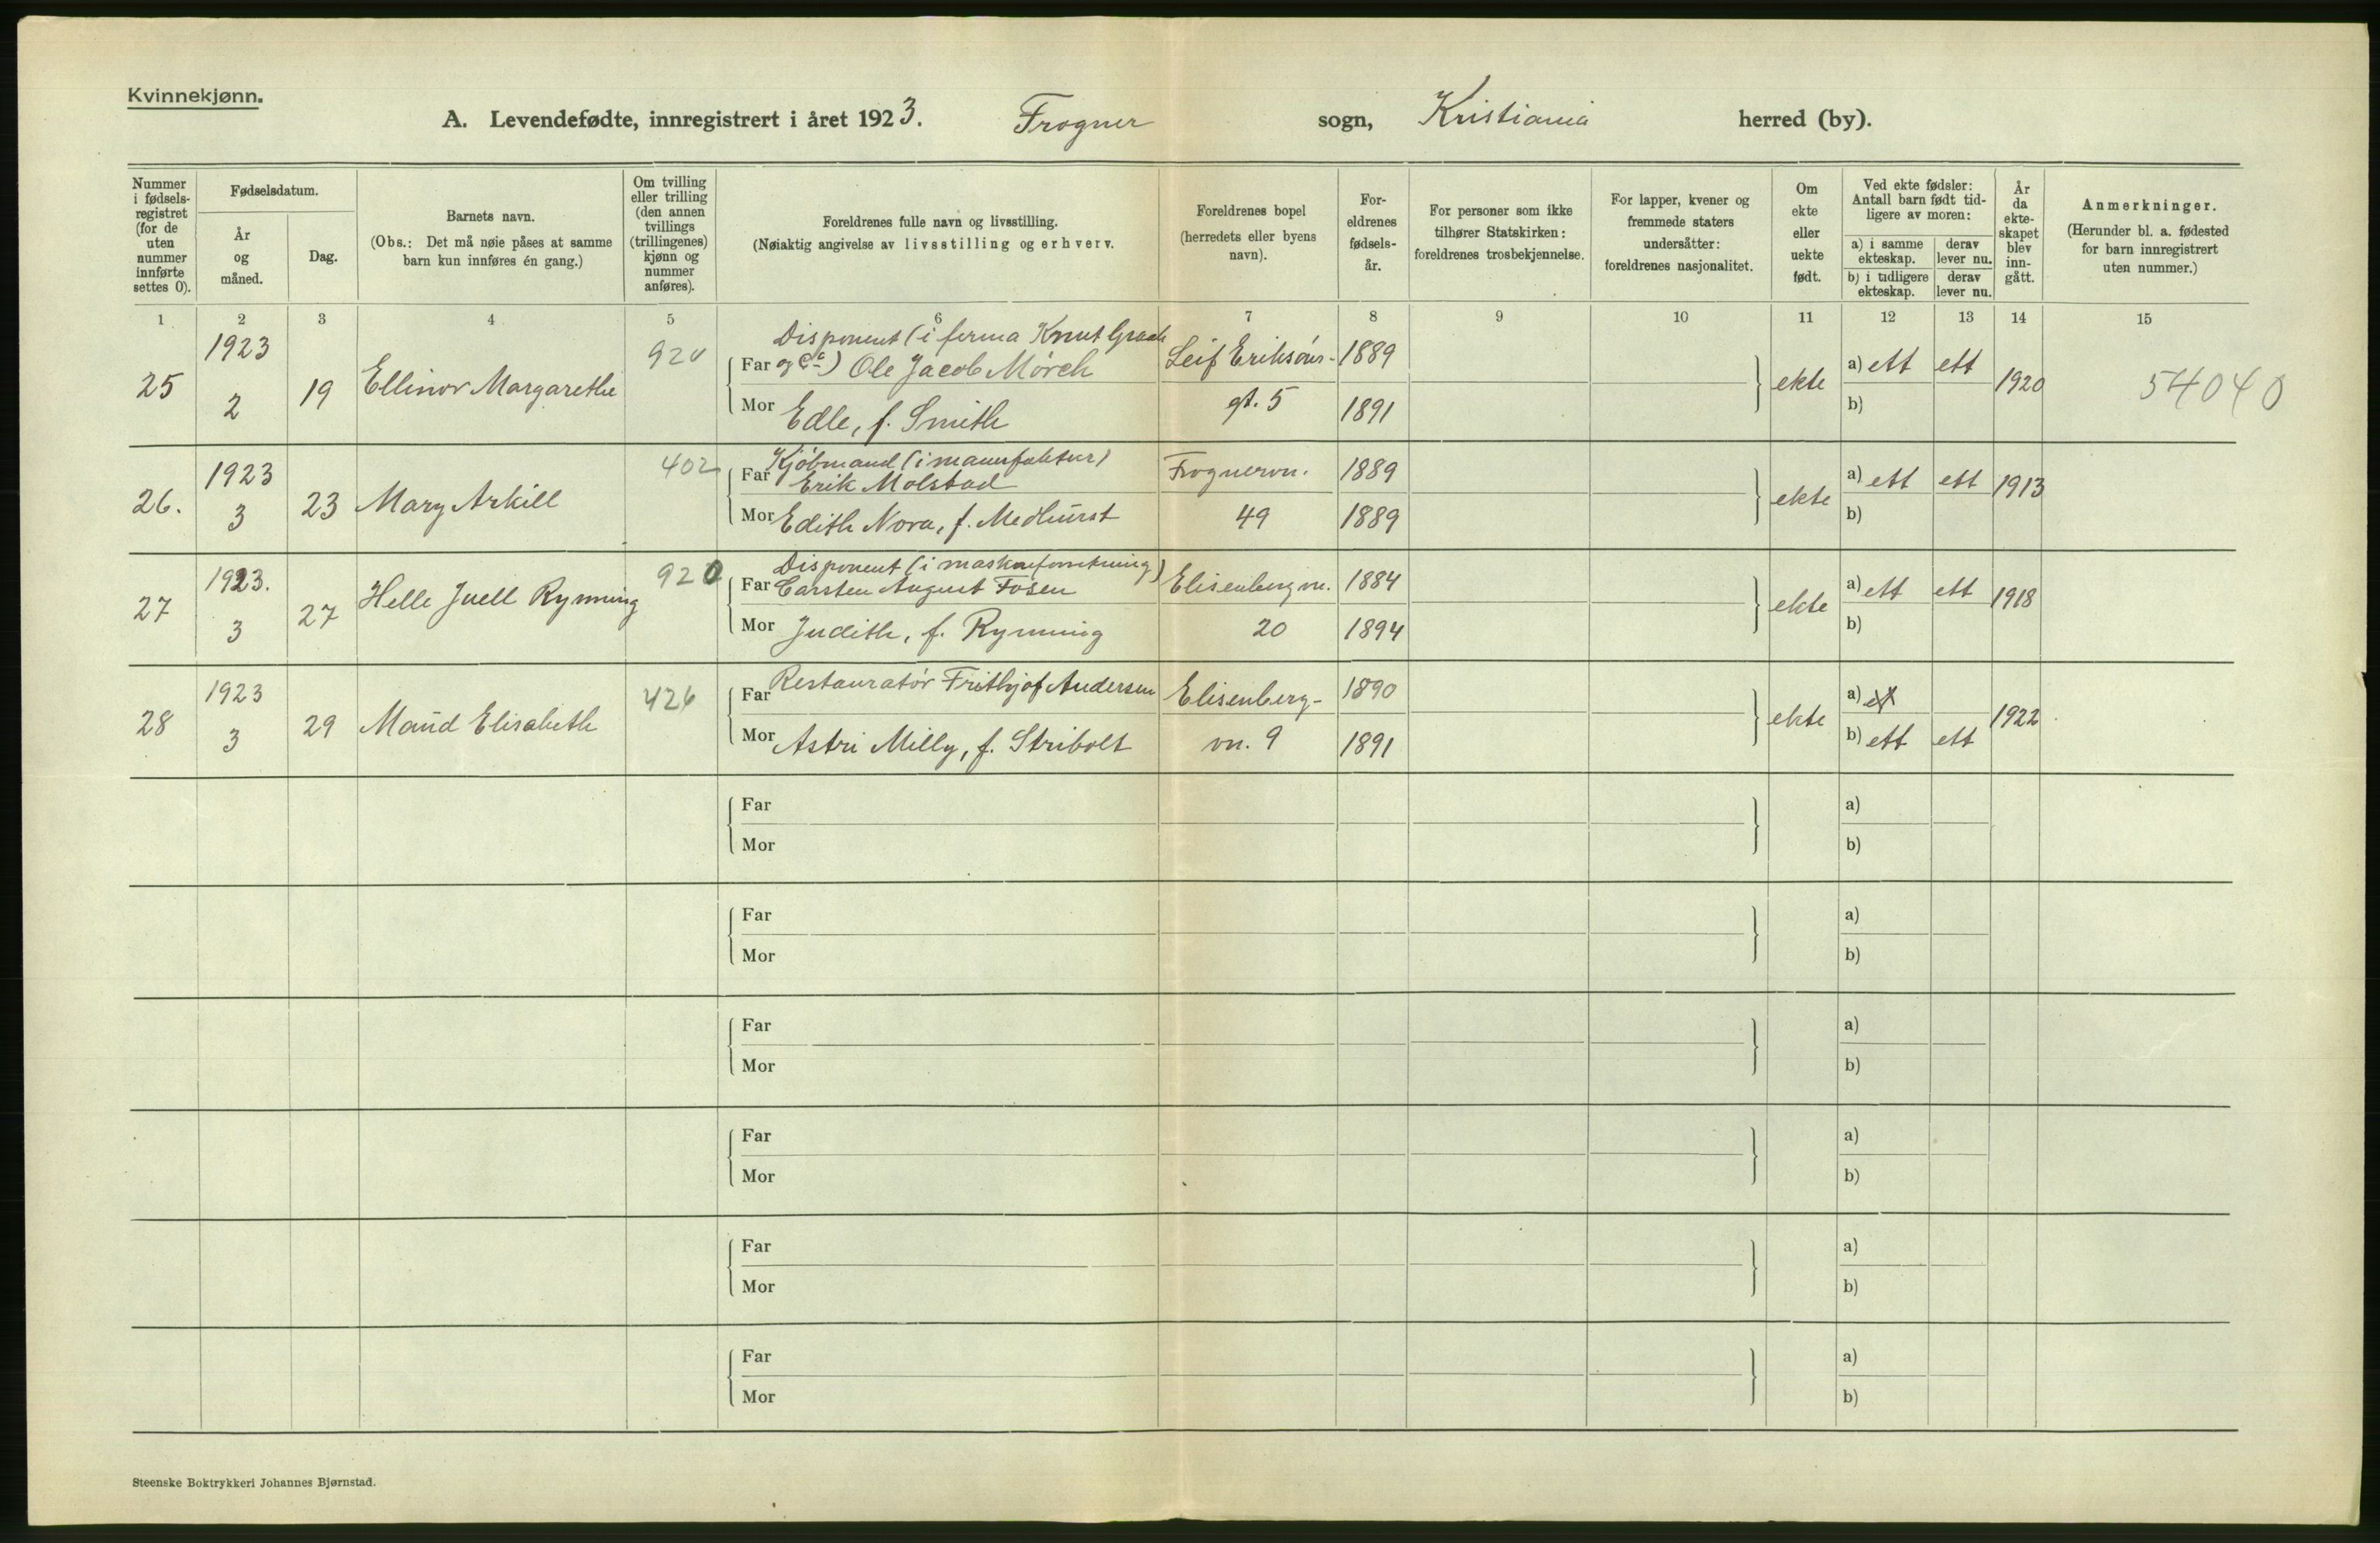 Kvinnekjønn.
A. Levendefødte, innregistrert i året 1923. Frogner sogn, Kristiania herred (by).
Nummer i fødselsregistret (for de uten nummer innførte settes 0).
Fødselsdatum.
År og måned.
Dag.
Barnets navn.
(Obs.: Det må nøie påses at samme barn kun innføres én gang.)
Om tvilling eller trilling (den annen tvillings (trillingenes) kjønn og nummer anføres).
Foreldrenes fulle navn og livsstilling.
(Nøiaktig angivelse av livsstilling og erhverv.
Foreldrenes bopel (herredets eller byens navn).
Foreldrenes fødselsår.
For personer som ikke tilhører Statskirken: foreldrenes trosbekjennelse.
For lapper, kvener og fremmede staters undersåtter: foreldrenes nasjonalitet.
Om ekte eller uekte født.
Ved ekte fødsler: Antall barn født tidligere av moren:
a) i samme ekteskap.
derav lever nu.
b) i tidligere ekteskap.
derav lever nu.
År da ekteskapet blev inngått.
Anmerkninger.
(Herunder bl. a. fødested for barn innregistrert uten nummer.)
1 2 3 4 5 6 7 8 9 10 11 12 13 14 15
25 1923 2 19 Ellinor Margarethe 920
Disponent (i firma Knut Graah
Far og Co) Ole Jacob Mörch Leif Eriksöns- 1889
Mor Edle, f. Smith gt. 5 1891
ekte a) ett ett b) 1920 54040
26. 1923 3 23 Mary Arkill 402
Kjöbmand (i manufaktur)
Far Erik Molstad Frognervn. 1889
Mor Edith Nora, f. Medhurst 49 1889
ekte a) ett ett b) 1913
27 1923. 3 27 Helle Juell Rynning 920
Disponent (i maskinforretning)
Far Carsten August Fosen Elisenbergvn. 1884
Mor Judith, f. Rynning 20 1894
ekte a) ett ett b) 1918
28 1923 3 29 Maud Elisabeth 426
Far Restauratör Frithjof Andersen Elisenberg- 1890
Mor Astri Milly, f. Stribolt vn. 9 1891
ekte a) ett b) ett ett 1922
Far a)
Mor b)
Far a)
Mor b)
Far a)
Mor b)
Far a)
Mor b)
Far a)
Mor b)
Far a)
Mor b)
Steenske Boktrykkeri Johannes Bjørnstad.